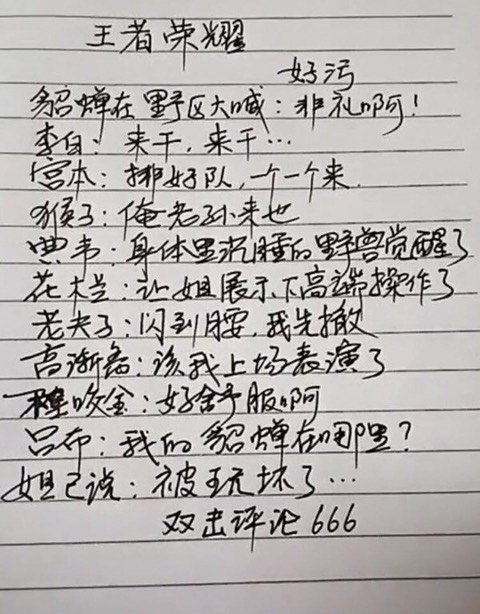 王者荣耀
好污
貂蝉在野区大喊：非礼啊！
李白：来干，来干…
宫本：排好队，一个一个来
猴子：俺老孙来也
典韦：身体里沉睡的野兽觉醒了
花木兰：让姐展示下高端操作了
老夫子：闪到腰，我先撤
高渐离：该我上场表演了
程咬金：好舒服啊
吕布：我的貂蝉在哪里？
妲己说：被玩坏了…
双击评论666